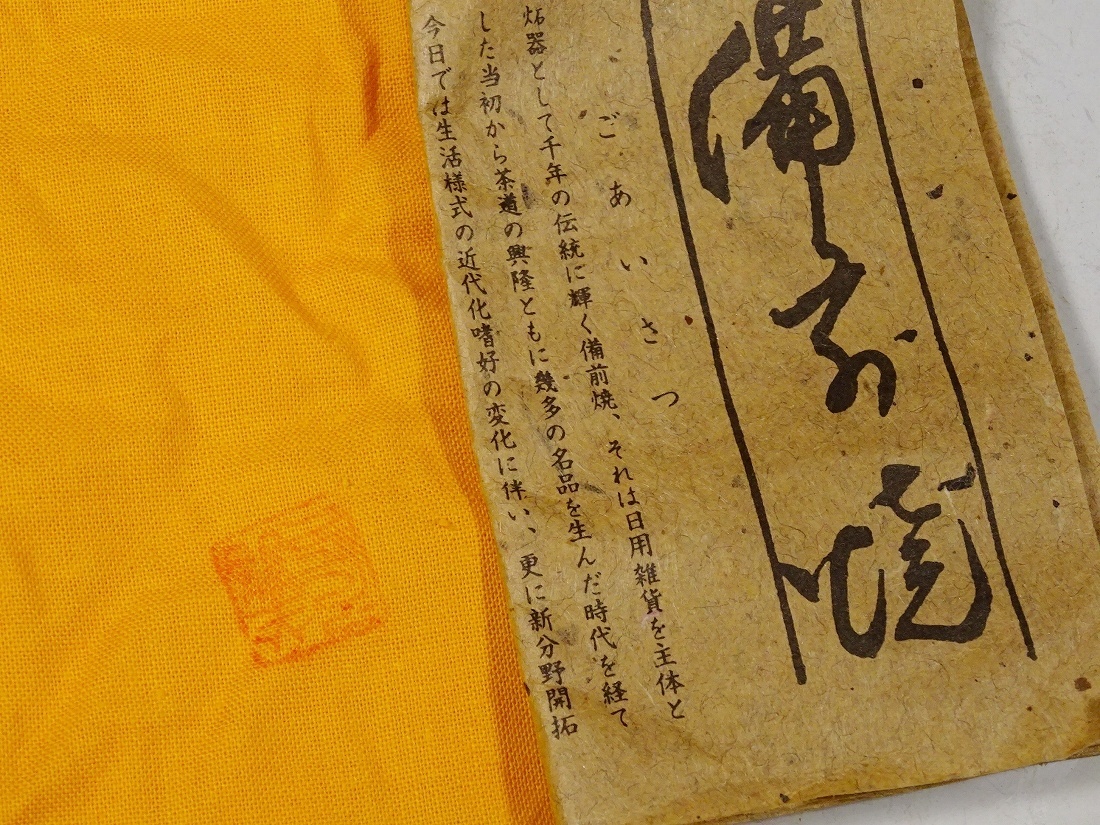 備前焼
ごあいさつ
炻器として千年の伝統に輝く備前焼、それは日用雑貨を主体と
した当初から茶道の興隆ともに幾多の名品を生んだ時代を経て
今日では生活様式の近代化嗜好の変化に伴い、更に新分野開拓